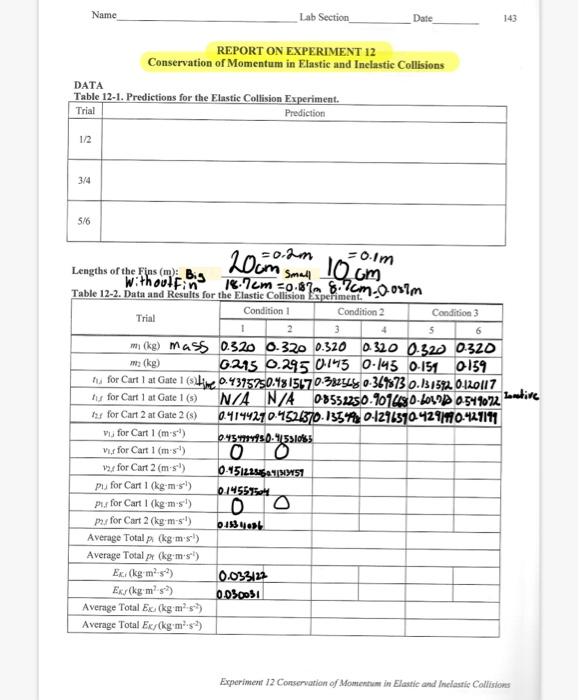 Name Lab Section Date 143
REPORT ON EXPERIMENT 12
Conservation of Momentum in Elastic and Inelastic Collisions
DATA
Table 12-1. Predictions for the Elastic Collision Experiment.
Trial Prediction
1/2
3/4
5/6
20cm =0.2m =0.1m
Lengths of the Fins (m): Big Small 10 cm
Without Fins 18.7cm =0.187m 8.7cm=0.087m
Table 12-2. Data and Results for the Elastic Collision Experiment.
Trial Condition 1 Condition 2 Condition 3
1 2 3 4 5 6
m₁ (kg) mass 0.320 0.320 0.320 0.320 0.320 0.320
m₂ (kg) 0.295 0.295 0.145 0.145 0.159 0.159
t₁,ᵢ for Cart 1 at Gate 1 (s) time 0.437575 0.481567 0.369673 0.131592 0.120117
t₁,f for Cart 1 at Gate 1 (s) N/A N/A 0.855225 0.549072
t₂,f for Cart 2 at Gate 2 (s) 0.414427 0.129657
v₁,ᵢ for Cart 1 (m·s⁻¹)
v₁,f for Cart 1 (m·s⁻¹) 0 0
v₂,f for Cart 2 (m·s⁻¹)
p₁,ᵢ for Cart 1 (kg·m·s⁻¹) 0.14557504
p₁,f for Cart 1 (kg·m·s⁻¹) 0 0
p₂,f for Cart 2 (kg·m·s⁻¹)
Average Total pᵢ (kg·m·s⁻¹)
Average Total pf (kg·m·s⁻¹)
EK,i (kg·m²·s⁻²) 0.033122
EK,f (kg·m²·s⁻²) 0.030031
Average Total EK,i (kg·m²·s⁻²)
Average Total EK,f (kg·m²·s⁻²)
Experiment 12 Conservation of Momentum in Elastic and Inelastic Collisions